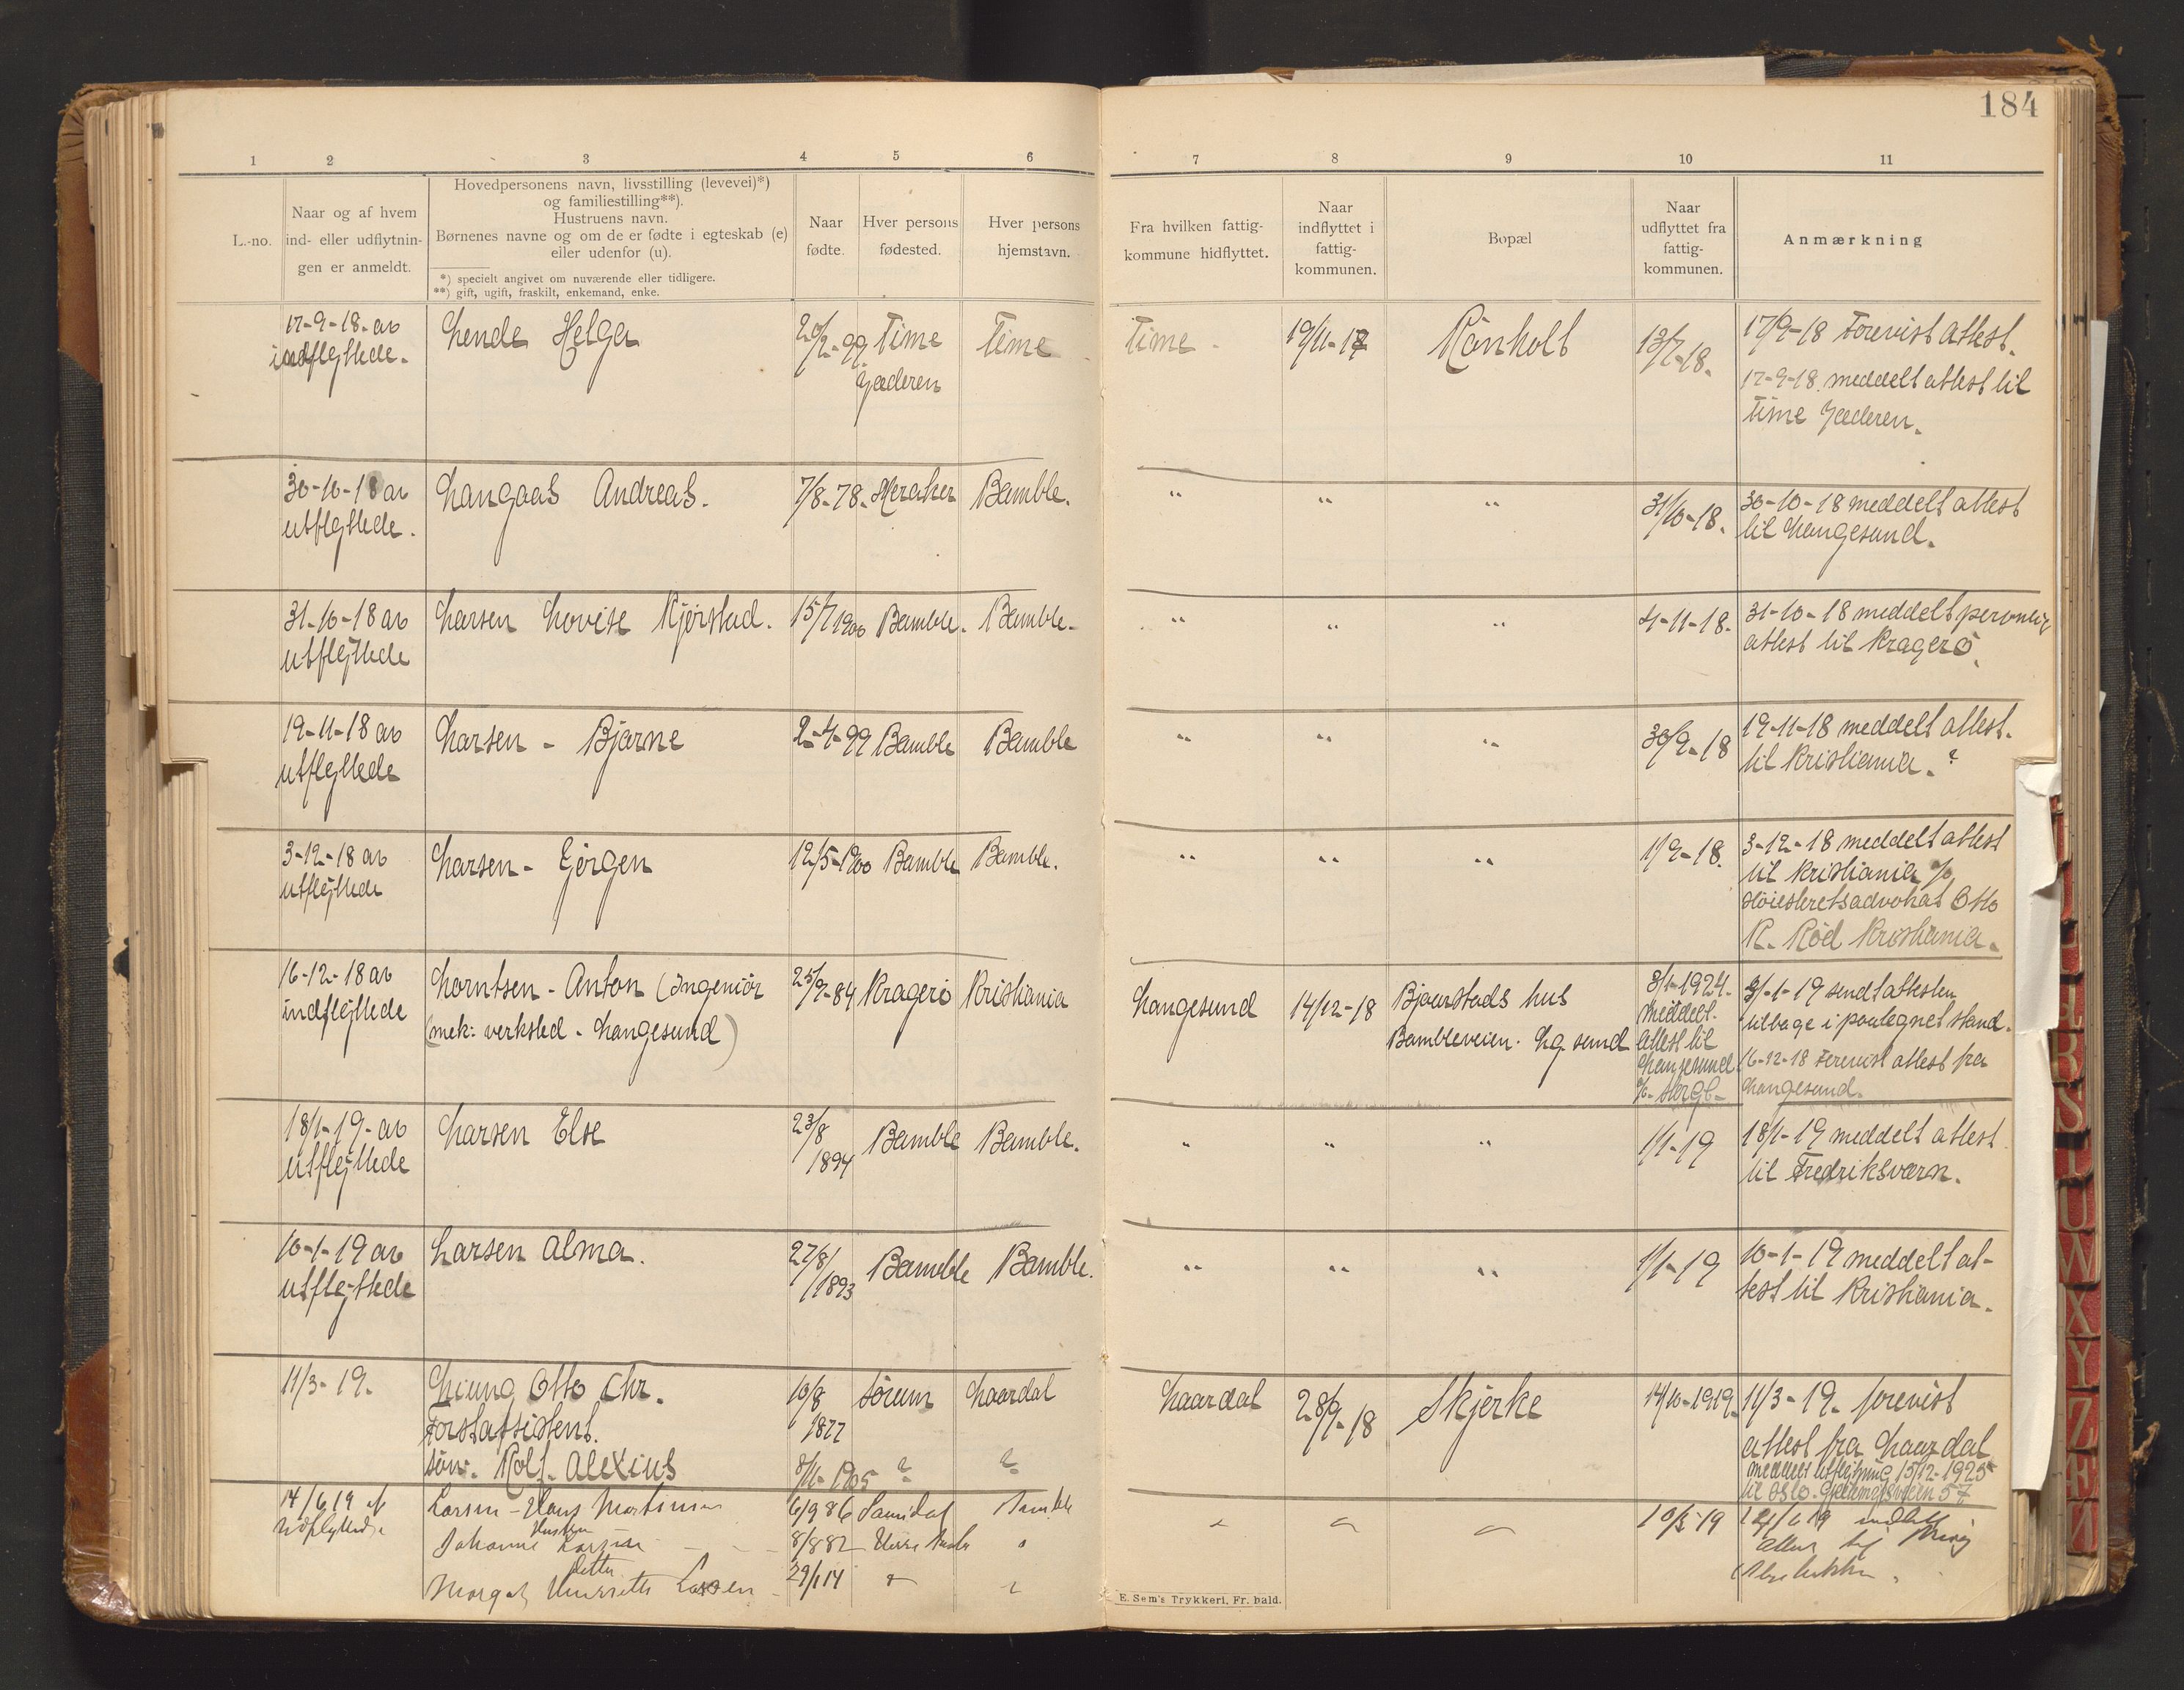 184
1 2 3 4 5 6 7 8 9 10 11
L.-no.
Naar og af hvem
ind- eller udflytnin-
gen er anmeldt.
Hovedpersonens navn, livsstilling (levevei)*)
og familiestilling**).
Hustruens navn.
Børnenes navne og om de er fødte i egteskab (e)
eller udenfor (u).
*) specielt angivet om nuværende eller tidligere.
**) gift, ugift, fraskilt, enkemand, enke.
Naar
fødte.
Hver persons
fødested.
Hver persons
hjemstavn.
Fra hvilken fattig-
kommune hidflyttet.
Naar
indflyttet i
fattig-
kommunen.
Bopæl
Naar
udflyttet fra
fattig-
kommunen.
Anmærkning
17-9-18 av Lende Helga 20/2-99 Time Time Time 19/11-17 Rönholt 13/7-18. 17/9-18 Forevist attest.
indflyttede. Jæderen 17-9-18. meddelt attest til
Time Jæderen.
30-10-18 av Langaas Andreas. 7/8-78. Meraker Bamble. " " " 31/10-18. 30-10-18 meddelt attest
utflyttede. til Langesund.
31-10-18 av Larsen Lovise Kjørstad. 15/7 1900 Bamble. Bamble. " " " 4-11-18. 31-10-18 meddelt personlig
utflyttede attest til Kragerö.
19-11-18 av Larsen - Bjarne 2-4-99 Bamble Bamble " " " 30/9-18 19-11-18 meddelt attest.
utflyttede til Kristiania. ?
3-12-18 av Larsen - Jørgen 12/5-1900 Bamble Bamble. " " " 1/9-18. 3-12-18 meddelt attest
utflyttede til Kristiania %
Höiesteretsadvokat Otto
K. Röd Kristiania.
16-12-18 av Lorntsen - Anton (Ingeniör 25/9-84 Kragerö Kristiania Langesund 14/12-18 Bjaarstads hus 8/1-1924. 3/-1-19 sendt attesten
indflyttede (mek: verksted - Langesund) Bambleveien. Lg. sund meddelt tilbage i paategnet stand.
attest til 16-12-18 Forevist attest fra
Langesund Langesund.
18/1-19-av Larsen Else 23/8 Bamble Bamble. " " " 1/1-19 18/1-19 meddelt attest
utflyttede 1894 til Fredriksværn.
10-1-19 av Larsen Alma. 27/8/ Bamble Bamble. " " " 1/1-19 10-1-19 meddelt at-
utflyttede 1893 test til Kristiania.
11/3-19. Liung Otto Chr. 10/8 Sørum Laardal Laardal 28/9-18 Skjerke 14/10-1919. 11/3-19. forevist
Forstassistent. 1877 attest fra Laardal
søn. Rolf. Alexius 8/11-1905 ? ? meddelt utflytning 15/12-1925
til Oslo.
14/6 19 af Larsen - Hans Martinius 6/9 86 Sannidal Bamble " " " 10/5-19 14/6 19
Udflyttede Hustru
Johanne Larsen 8/8 82 "
datter
Margit Henriette Larsen 29/1 14 " "
E. Sem's Trykkeri, Fr. hald.